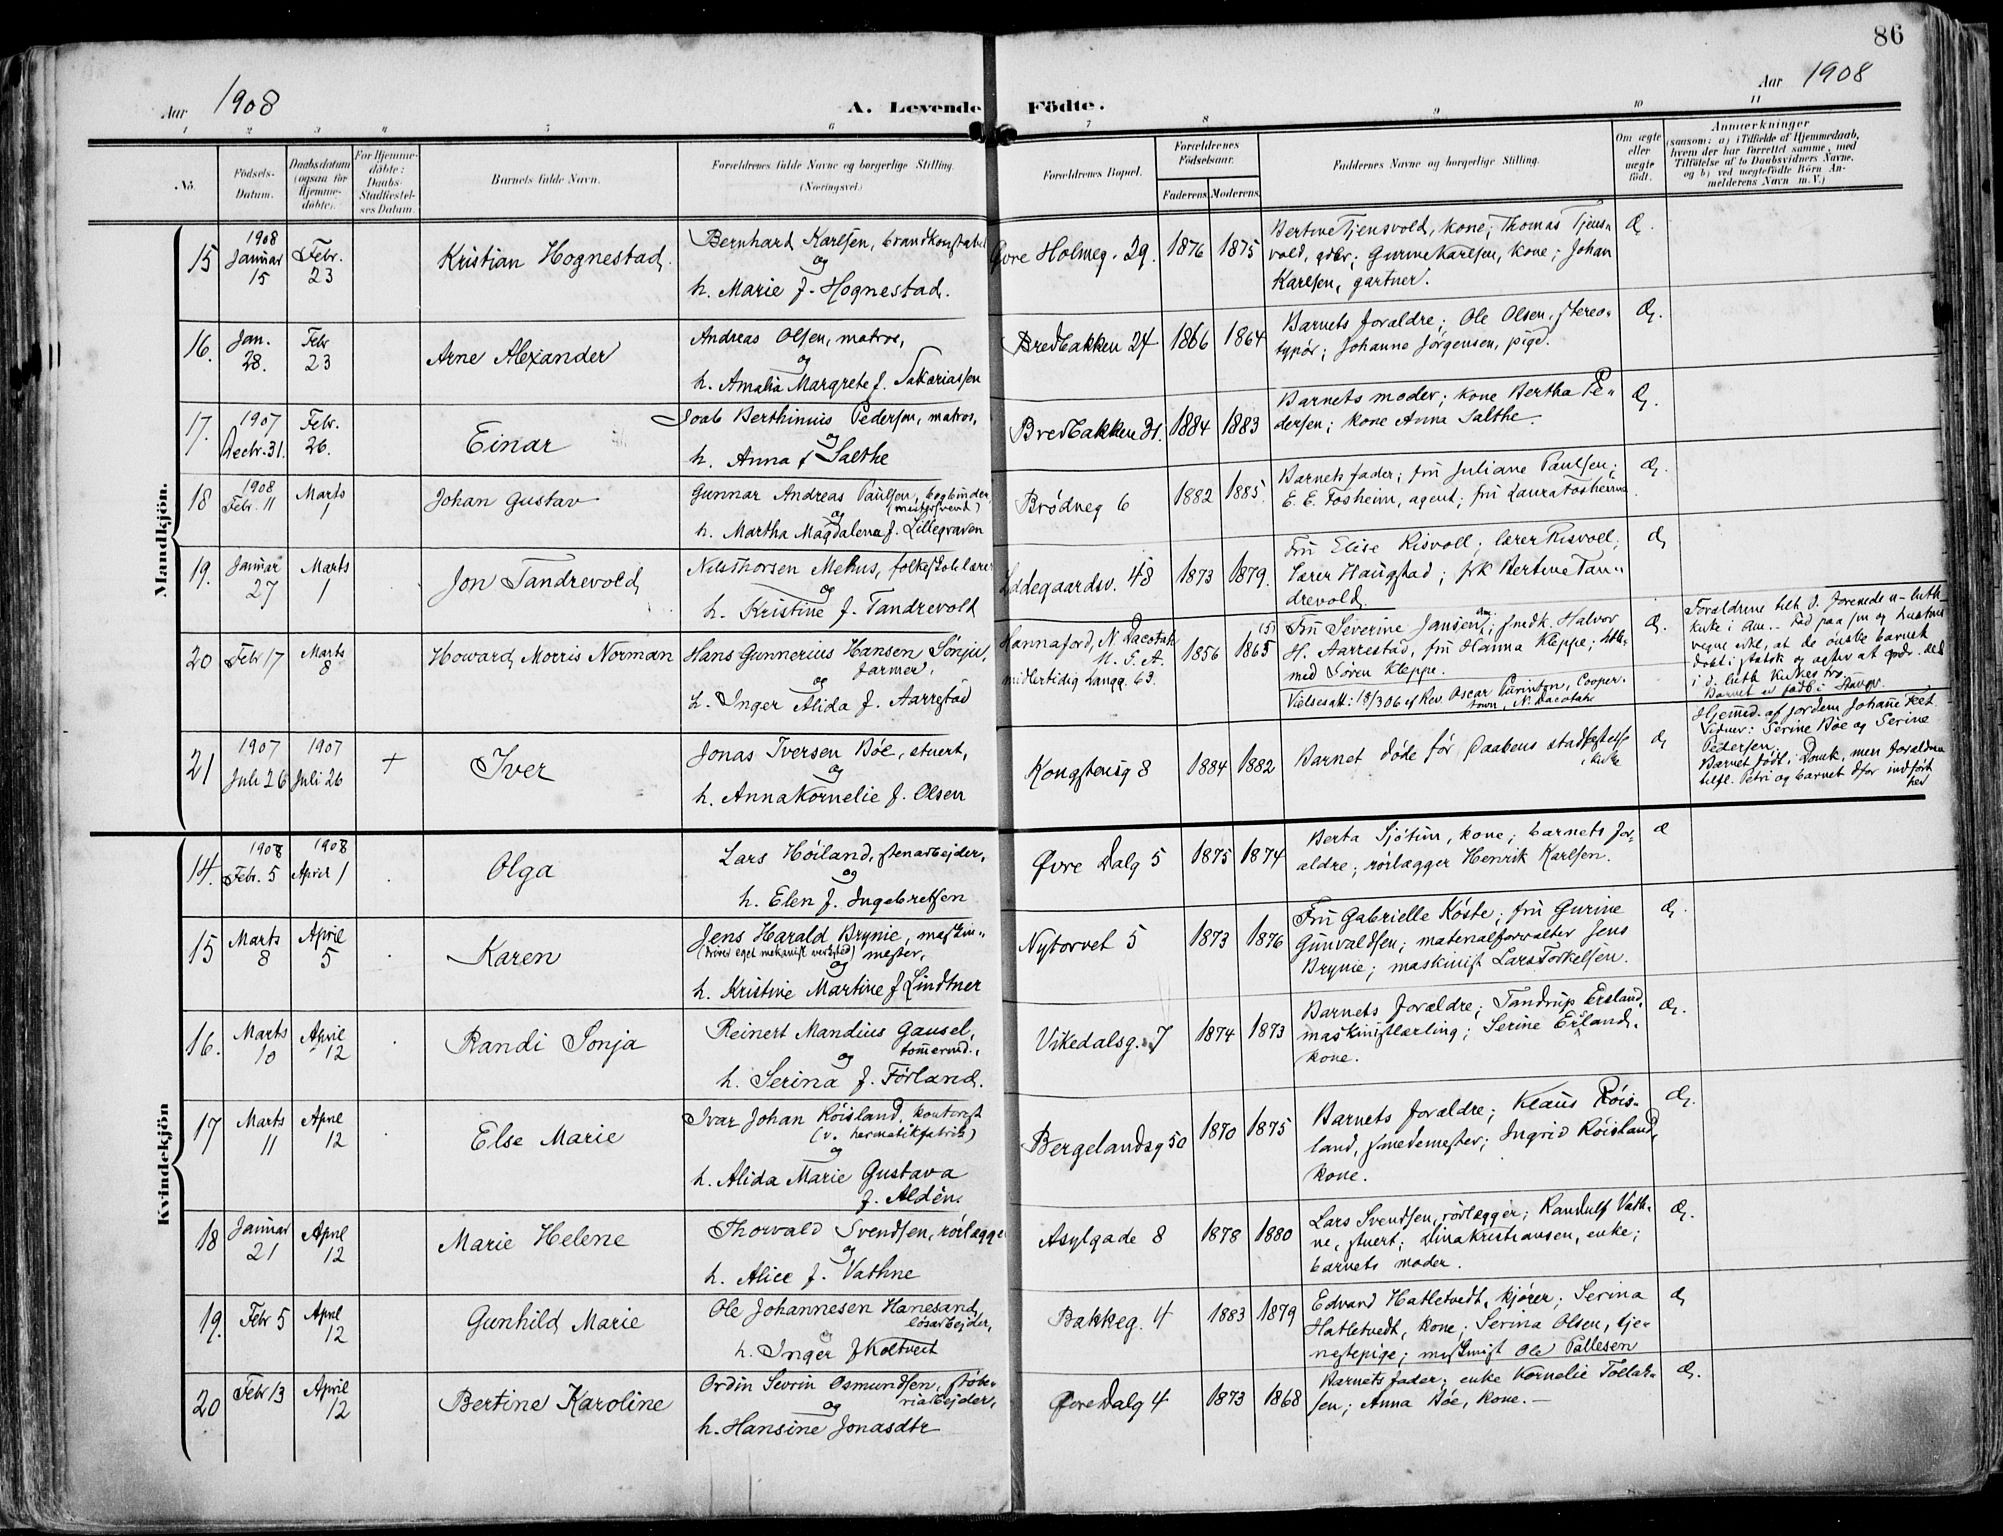 86
Aar 1908
A. Levende Födte.
Aar 1908
1 2 3 4 5 6 7 8 9 10 11
No.
Födsels-Datum.
Daabsdatum (ogsaa for Hjemme-döbte).
For Hjemme-döbte: Daabs-Stadfæstel-ses Datum.
Barnets fulde Navn.
Forældrenes fulde Navne og borgerlige Stilling. (Næringsvei.)
Forældrenes Bopæl.
Forældrenes Födselsaar.
Faderens. Moderens.
Faddernes Navne og borgerlig Stilling.
Om ægte eller uægte født.
Anmærkninger
(saasom: a) i Tilfælde af Hjemmedaab,
hvem der har forrettet samme, med
Tilføielse af to Daabsvidners Navne,
og b) ved uægtefødte Börn An-
melderens Navn m. V.)
Mandkjön.
15 1908 Januar 15 Febr. 23 Kristian Hognestad.
Bernhard Karlsen, brandkonstabel
og
h. Marie f. Hognestad.
Øvre Holmeg. 29. 1876 1875
Bertine Tjensvold, kone; Thomas Tjens-
vold, gdbr; Gurine Karlsen, kone; Johan
Karlsen, gartner.
Æ.
16. Jan. 28. Febr 23 Arne Alexander
Andreas Olsen, matros,
og
h. Amalia Margrete f. Sakariassen
Bredbakken 24 1866 1864
Barnets forældre; Ole Olsen, stereo-
typør; Johanne Jørgensen, pige.
Æ.
17. 1907 Decbr. 31. Febr. 26. Einar
Joab Berthinius Pedersen, matros,
og
h. Anna f Salthe
Bredbakken 31. 1884 1883
Barnets moder; kone Bertha Pe-
dersen; kone Anna Salthe.
Æ.
18 1908 Febr. 11 Marts 1 Johan Gustav
Gunnar Andreas Paulsen, bogbinder
(mestersvend)
og
h. Martha Magdalena f. Lillegraven
Brødreg 6 1882 1885.
Barnets fader; fru Juliane Paulsen;
E. E. Fosheim, agent; fru Laura Fosheim
Æ.
19. Januar 27 Marts 1 Jon Tandrevold
Nils Thorsen Mehus, folkeskolelærer
og
h. Kristine f. Tandrevold
Ladegaardsv. 48 1873 1879.
Fru Elise Risvoll; lærer Risvoll;
lærer Haugstad; frk Bertine Tan-
drevold.
Æ
20 Febr 17 Marts 8 Howard Morris Norman
Hans Gunnerius Hansen Sønju,
farmer,
og
h. Inger Alida f. Aarrestad
Hannaford, N. Dacotah
U. S. A.
midlertidig Langg. 63. 1856 1865
Fru Severine Jansen; smedk. Halvor
H. Aarrestad, fru Hanna Kleppe;
med Søren Kleppe.
Vielsesatt: 18/3 06 af Rev. Oscar Purinton, Cooper-
town, N. Dacotah
Æ.
Forældrene tilh. d. forenede n- luth
kirke i Am.
vegne
døbt i statsk og
i d. luth. kirkes tro.
Barnet er født i Stavgr.
21 1907 Juli 26 1907 Juli 26 + Iver
Jonas Iversen Bøe, stuert,
og
h. Anna Kornelie f. Olsen
Kongstensg 8 1884 1882
Barnet døde før daabens stadfæstelse
i kirke
Æ
Hjemmed. af jordem Johanne Feet
Vidner: Serine Bøe og Serine
Pedersen.
Barnet født i Domk, men forældrene
tilh. Petri og barnet dfor indført
her
Kvindekjön
14. 1908 Febr. 5 1908 April 1 Olga
Lars Høiland, stenarbejder,
og
h. Elen f. Ingebretsen
Øvre Dalg 5 1875 1874
Berta Sjøtun, kone; barnets for-
ældre; rørlægger Henrik Karlsen.
Æ
15 Marts 8 April 5 Karen
Jens Harald Brynie, maskin-
(driver eget mekanisk verksted) mester,
og
h. Kristine Martine f Lindtner
Nytorvet 5 1873 1876
Fru Gabrielle Køste; fru Gurine
Gunvaldsen; materialforvalter Jens
Brynie; maskinist Lars Torkelsen.
Æ.
16. Marts 10 April 12 Randi Sonja
Reinert Mandius Gausel,
tømermd.,
og
h. Serina f. Førland.
Vikedalsg. 7 1874 1873
Barnets forældre; Tandrup Ersland,
maskinistlærling; Serine Ersland,
kone.
Æ.
17 Marts 11 April 12 Else Marie
Ivar Johan Røisland, kontorist
(v. hermetikfabrik)
og
h. Alida Marie Gustava
f. Aldén.
Bergelandsg 50 1870 1875
Barnets forældre; Klaus Røis-
land, smedemester; Ingrid Røisland,
kone.
Æ.
18 Januar 21 April 12 Marie Helene
Thorvald Svendsen, rørlægger
og
h. Alice f. Vathne
Asylgade 8 1878 1880
Lars Svendsen, rørlægger; Randulf Vath-
ne, stuert; Dina Kristiansen, enke;
barnets moder.
Æ.
19. Febr 5 April 12 Gunhild Marie
Ole Johannesen Hanesand,
løsarbejder,
og
h. Inger f Koltveit
Bakkeg. 4 1883 1879
Edvard Hatletvedt, kjører; Serina
Hatletvedt, kone; Serina Olsen, tje-
nestepige; maskinist Ole Pallesen
Æ
20 Febr 13 April 12 Bertine Karoline
Ordin Sevrin Osmundsen, støbe-
riarbejder,
og
h. Hansine Jonasdtr
Øvre Dalg 4 1873 1868
Barnets fader; enke Kornelie Tollak-
sen; Anna Bøe, kone.—
Æ.